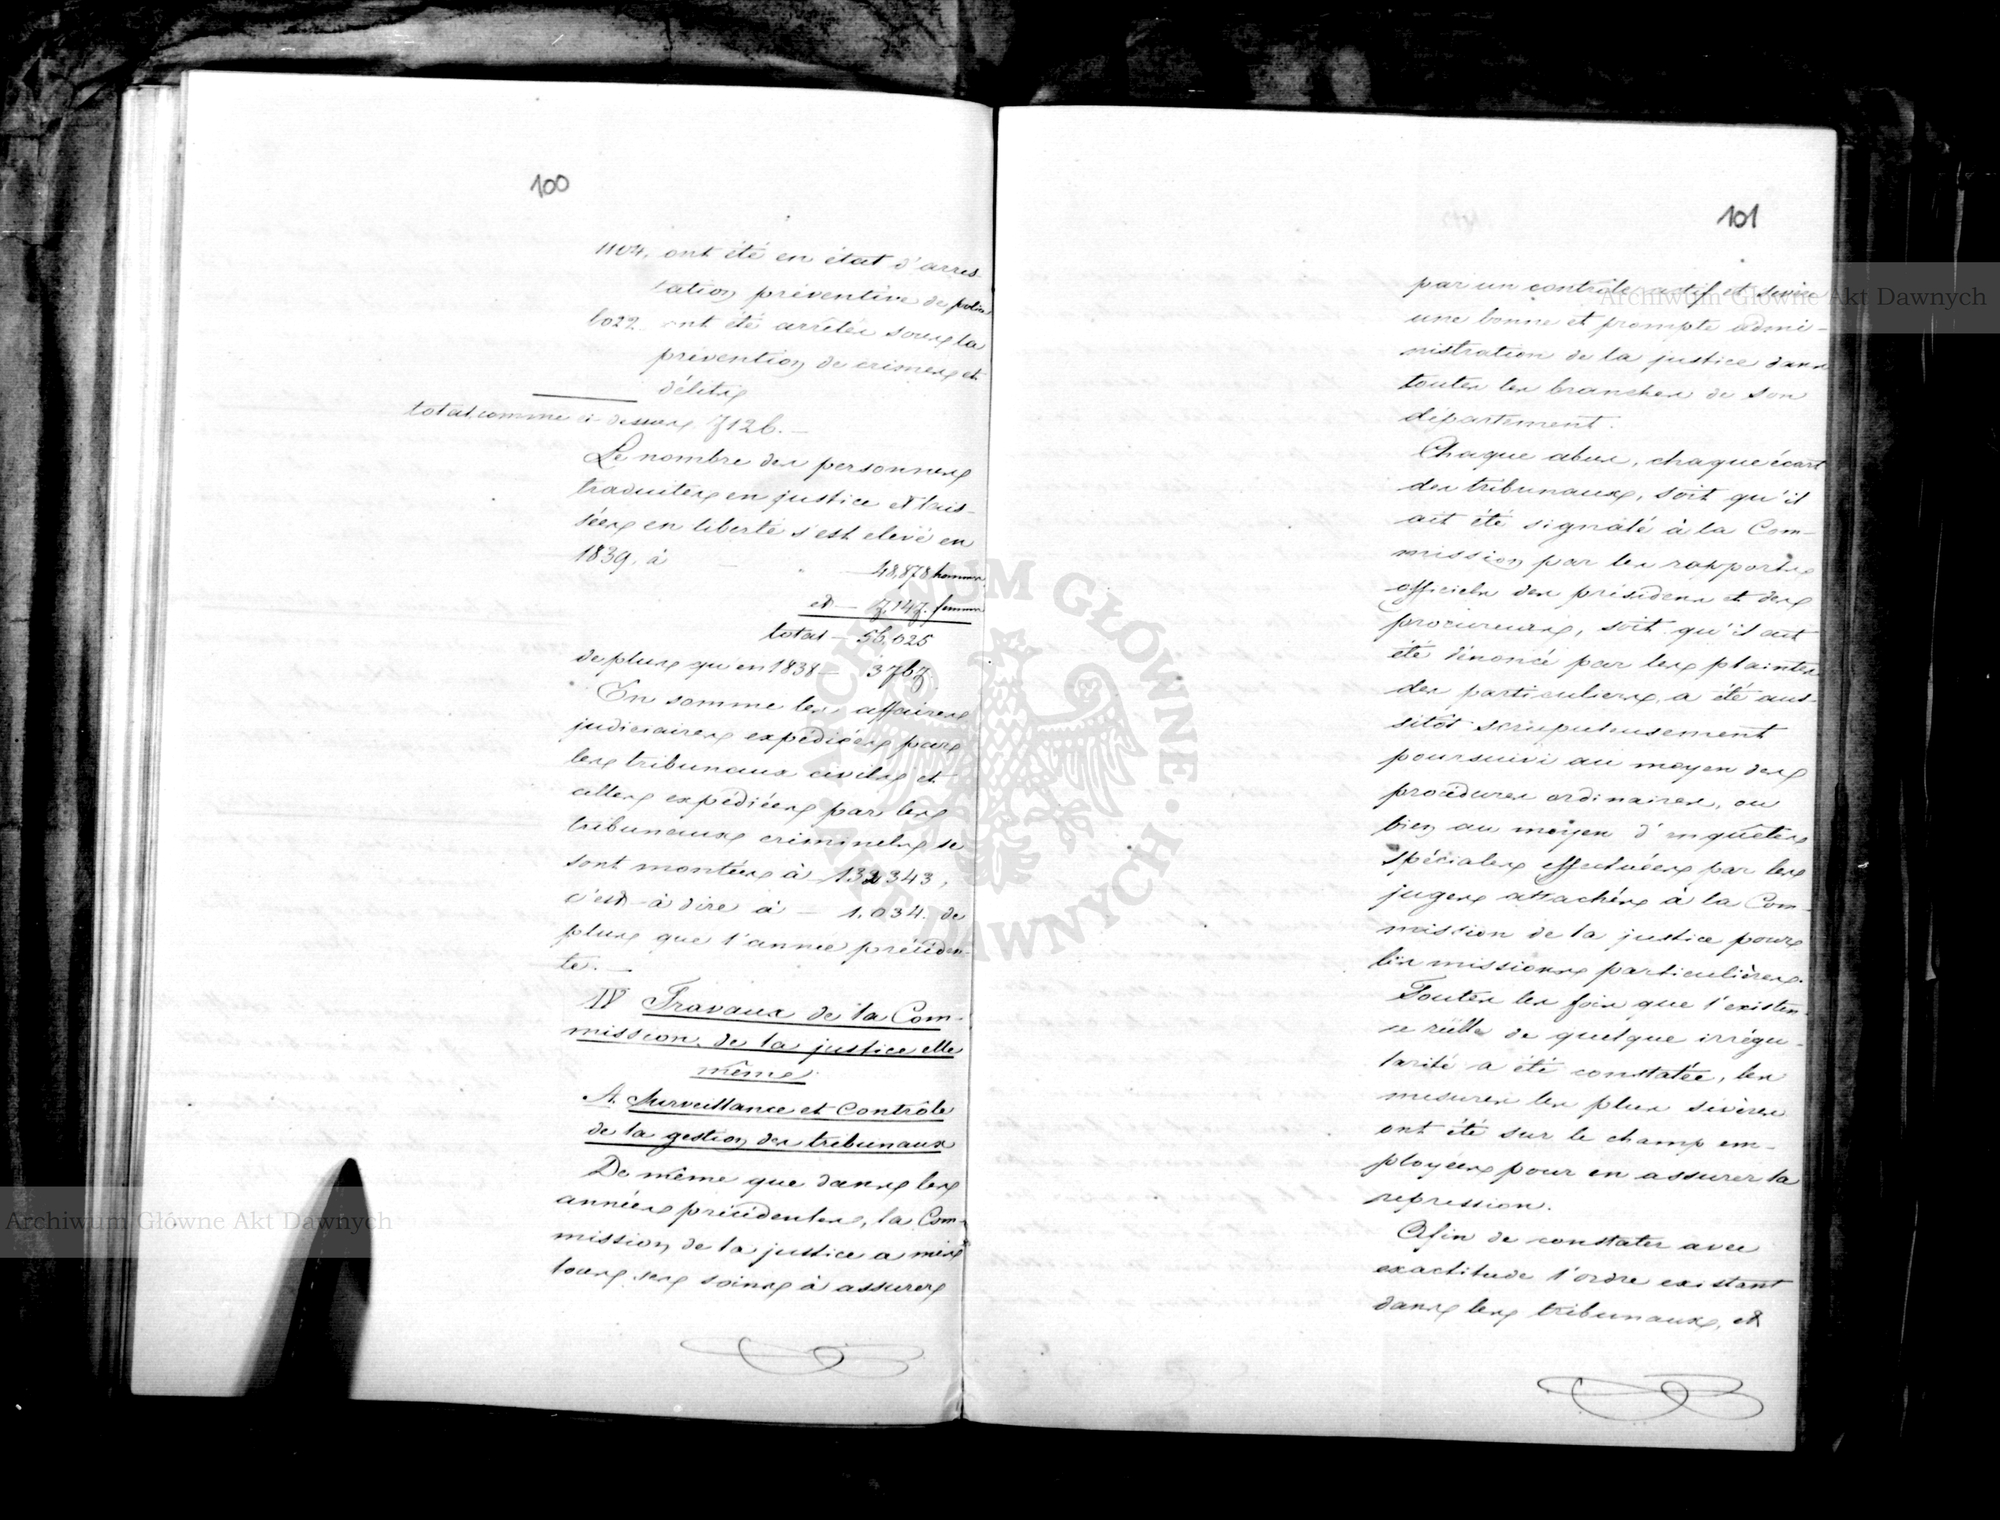 100
1104, ont été en état d'arres-
tation préventive de police
6022 ont été arrêtés sous la
prévention de crimes et
délits
total comme ci dessus 7126.—
Le nombre des personnes
traduites en justice et lais-
sées en liberté s'est elevé en
1839, à — — 48,878 hommes
et — 7,147. femmes
total — 56,025
de plus qu'en 1838 — 3767.
En somme les affaires
judiciaires expédiées par
les tribunaux civils et
celles expédiées par les
tribunaux criminels se
sont montées à 132343,
c'est-à dire à — 1.034. de
plus que l'année précéden-
te.—
IV Travaux de la Com-
mission de la justice elle
même.
A. Surveillance et Contrôle
de la gestion des tribunaux
De même que dans les
années précédentes, la Com-
mission de la justice a mis
tous ses soins à assurer
101
par un contrôle actif et sévère
une bonne et prompte admi-
nistration de la justice dans
toutes les branches de son
département.
Chaque abus, chaque écart
des tribunaux, soit qu'il
ait été signalé à la Com-
mission par les rapports
officiels des présidens et des
procureurs, soit qu'il ait
été dénoncé par les plaintes
des particuliers, a été aus-
sitôt scrupuleusement
poursuivi au moyen des
procédures ordinaires, ou
bien au moyen d'enquêtes
spéciales effectuées par les
juges attachés à la Com-
mission de la justice pour
les missions particulières.
Toutes les fois que l'existen-
ce réelle de quelque irrégu-
larité a été constatée, les
mesures les plus sévères
ont été sur le champ em-
ployées pour en assurer la
répression.
Afin de constater avec
exactitude l'ordre existant
dans les tribunaux, et
Archiwum Główne Akt Dawnych
Archiwum Główne Akt Dawnych
ARCHIWUM GŁÓWNE AKT DAWNYCH